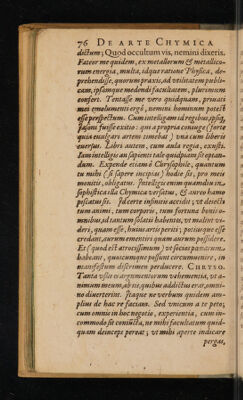 76 DE ARTE CHYMICA
dictum; Quod occultum vis, nemini dixeris.
Fateor me quidem, ex metallorum & metallico-
rum energia, multa, idque ratione Physica, de-
prehendisse, quorum praxis, ad veritatem publi-
cam, ipsamque medendi facultatem, plurimum
confert. Tentasse me vero quidquam, privati
mei emolumenti ergo, nemini hominum potest
esse perspectum. Cum intelligam id regibus, ipsisq́,
fuisse exitio: qui a propria coniuge (forte
quia evulgari artem timebat) una cum liberis
eversus. Libri autem, cum aula regia, exusti.
Iam intelligis an sapienti tale quidquam sit optan-
dum. Expende etiam ô Chrysophile, quantum
tu mihi (si sapere incipias) hodie sis, pro meis
monitis, obligatus. Intelligis enim quàmdiu in
sophistica illa Chymica versatus, & auro bono
sis. Id certè infinitis accidit, vt deiectis
tum animi, tum corporis, tum fortunæ bonis
omnibus, ad tantum solatii habentes, vt malint vi-
deri, quam esse, huius artis periti; potiusque esse
credant, aurum ementiri quam aurum possidere.
Et (quod est atrocissimum) vt socios
habeant, quoscumque possunt circumvenire, in
manifestum discrimen perducere. CHRYSO.
Tanta vestra argumentorum vehementia, vt a-
nimum meum, ab iis, quibus addictus erat, omni-
no diverterint. Itaque ne verbum quidem am-
plius de hac re faciam. Sed vnicum a te peto;
cum omnis in hoc negotio, experientia, cum in-
commodo sit coniuncta, ne mihi facultatum quid-
quam deinceps pereat; vt mihi aperte indicare
pergas,